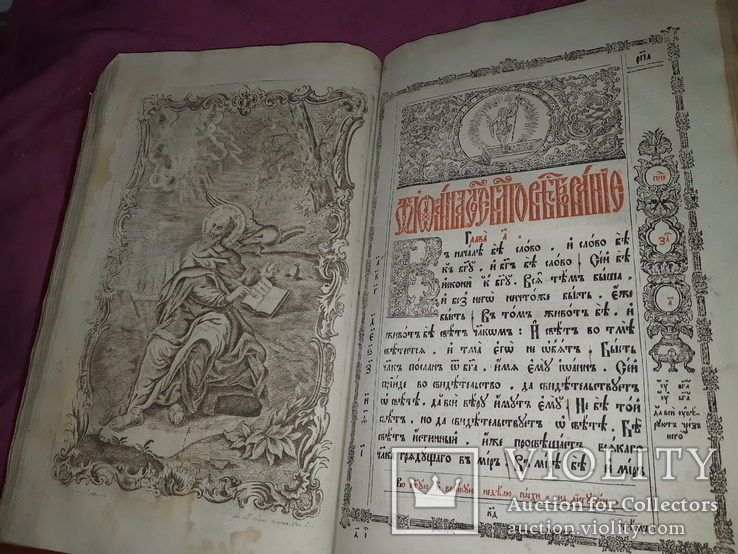 рп҃а
Ѿ іѡанна ст҃ое бл҃говѣствованїе
Глава а҃
Въ началѣ бѣ слово. и слово бѣ
къ бг҃у, и бг҃ъ бѣ слово. Сей бѣ
искони къ бг҃у. Вся тѣмъ быша,
и без негѡ ничтоже бысть, еже
бысть. Въ томъ животъ бѣ. и
животъ бѣ свѣтъ ч҃лкѡмъ: И свѣтъ во тмѣ
свѣтится, и тма егѡ не ѡбятъ. Бысть
ч҃лкъ посланъ ѿ бг҃а, имя ему іѡаннъ. Сей
прїиде во свидѣтельство, да свидѣтельствуетъ
ѡ свѣтѣ, да вси вѣру имутъ ему. Не бѣ той
свѣтъ, но да свидѣтельствуетъ ѡ свѣтѣ. Бѣ
свѣтъ истинный, иже просвѣщаетъ всякаго
ч҃лка грядущаго въ міръ. Въ мірѣ бѣ, и міръ
Во святую и великую недѣлю пасхи
да вси увѣруютъ
VIOLITY
Auction for Collectors
auction.violity.com